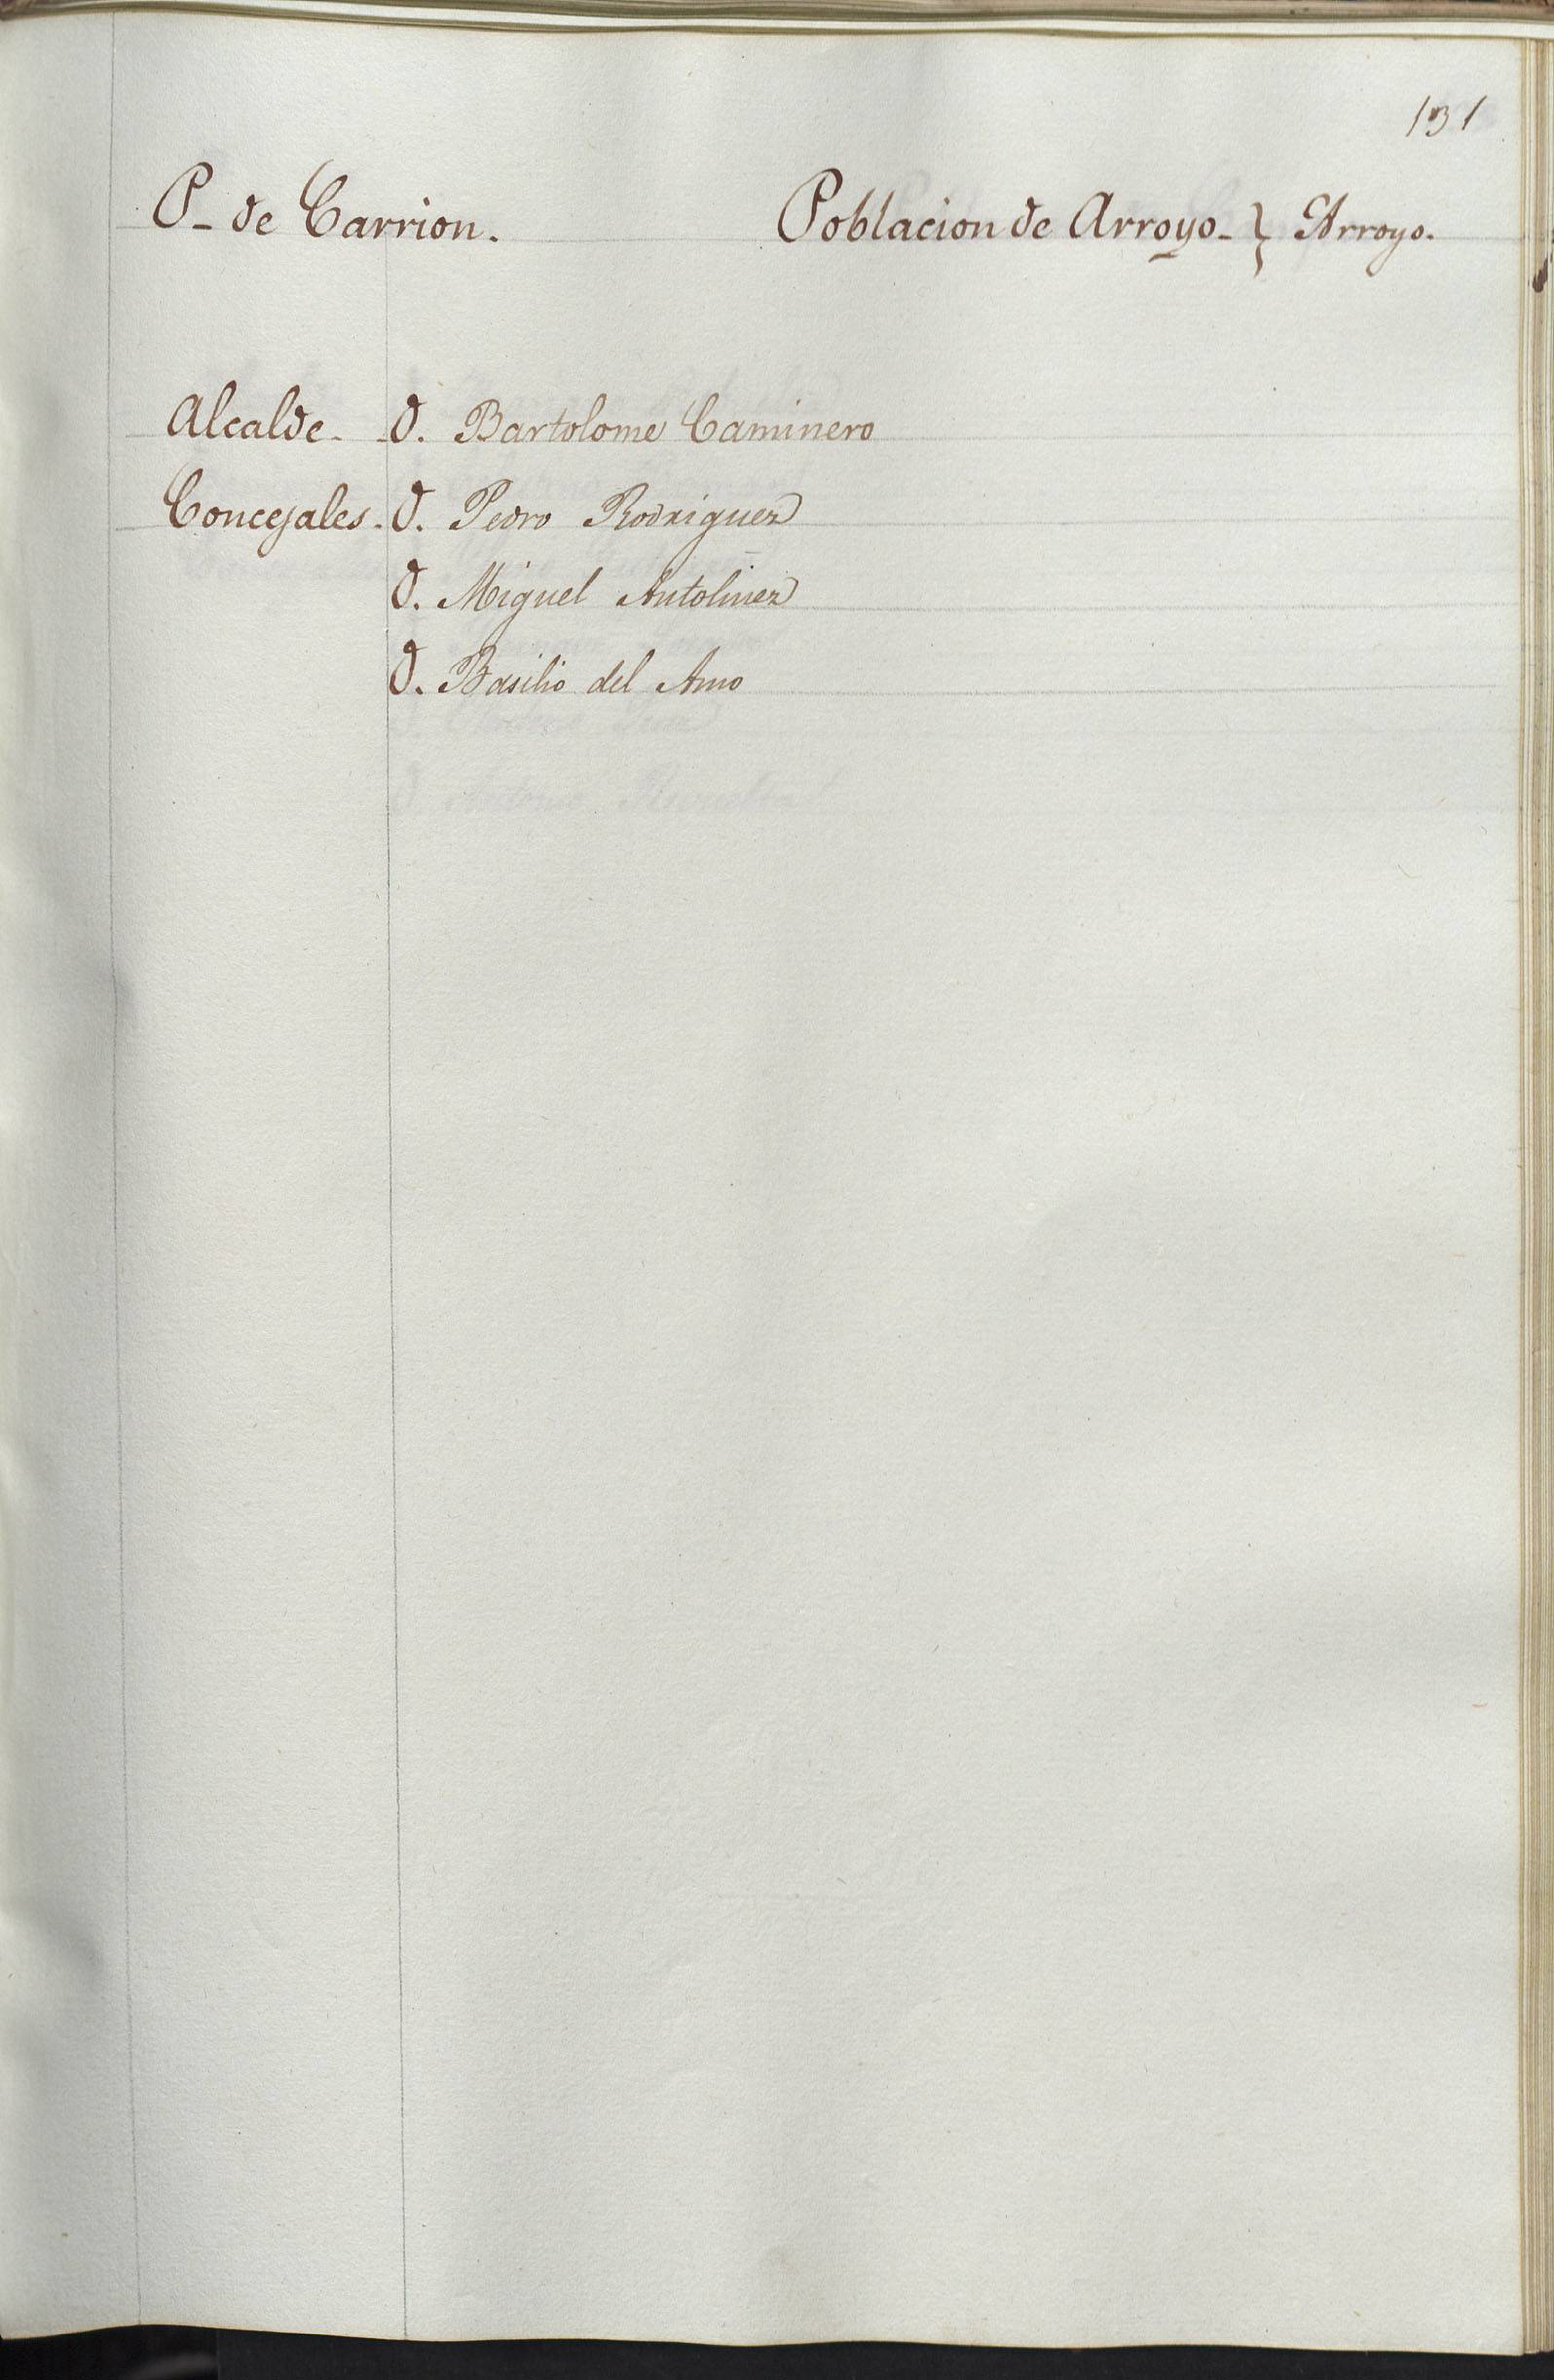 131
P- de Carrion. Poblacion de Arroyo- } Arroyo.
Alcalde- D. Bartolome Caminero
Concejales- D. Pedro Rodriguez
D. Miguel Antolinez
D. Basilio del Amo